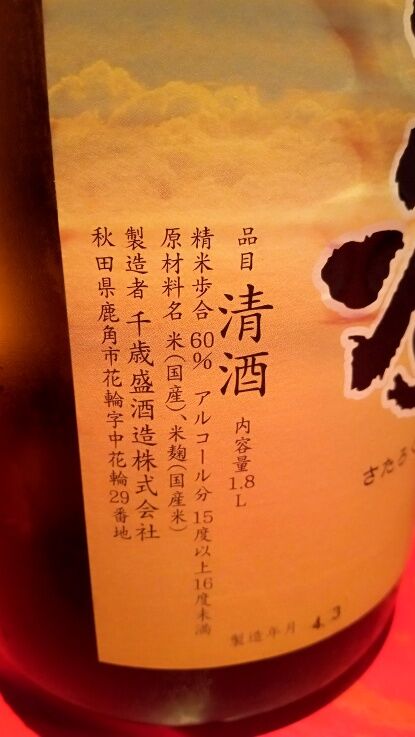 さたろ
品目 清酒 内容量1.8L
精米歩合 60% アルコール分 15度以上16度未満
原材料名 米(国産)、米麹(国産米)
製造者 千歳盛酒造株式会社
秋田県鹿角市花輪字中花輪29番地
製造年月 4.3